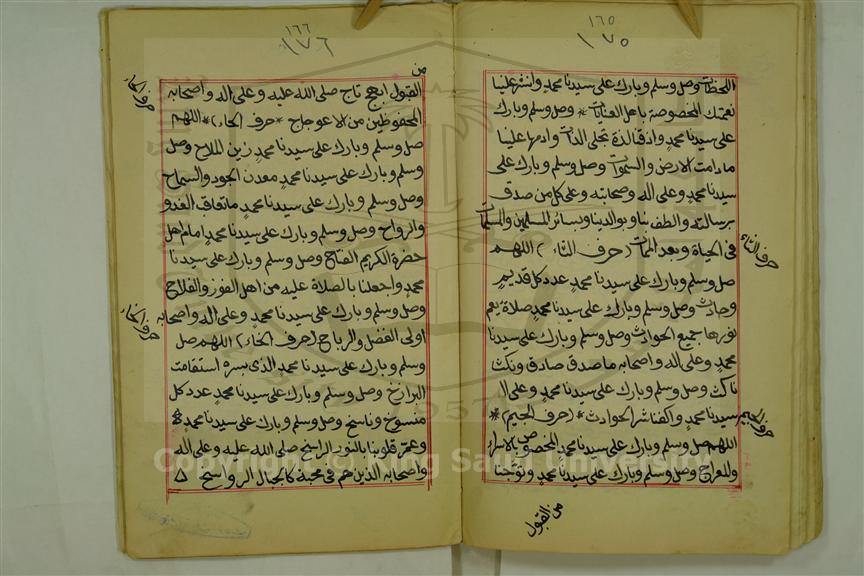 ١٦٥
١٧٥
اللحظات وصل وسلم وبارك على سيدنا محمد وانشر علينا
نعمتك المخصوصة باهل العنايات * وصل وسلم وبارك
على سيدنا محمد واذقنا لذة تجلى الذات وادمها علينا
مادامت الارض والسموات وصل وسلم وبارك على
سيدنا محمد وعلى اله وصحابته وعلى كل من صدق
برسالته والطف بنا وبوالدينا وبسائر المسلمين والمسلمات
فى الحياة وبعد الممات (حرف الثاء) اللهم
حرف الثاء
صل وسلم وبارك على سيدنا محمد عدد كل قديم
وحادث وصل وسلم وبارك على سيدنا محمد صلاة يعم
نورها جميع الحوادث وصل وسلم وبارك على سيدنا
محمد وعلى اله واصحابه ماصدق صادق ونكث
ناكث وصل وسلم وبارك على سيدنا محمد وعلى ال
سيدنا محمد واكفنا شر الحوادث * (حرف الجيم) *
حرف الجيم
اللهم صل وسلم وبارك على سيدنا محمد المخصوص بالاسراء
والمعراج وصل وسلم وبارك على سيدنا محمد وتوجنا
من القبول
١٦٦
١٧٦
من
القبول ابهج تاج صلى الله عليه وعلى اله واصحابه
المحفوظين من الاعوجاج * حرف الحاء) * اللهم
حرف الحاء
صل وسلم وبارك على سيدنا محمد زين الملاح وصل
وسلم وبارك على سيدنا محمد معدن الجود والسماح
وصل وسلم وبارك على سيدنا محمد ماتعاقب الغدو
والرواح وصل وسلم وبارك على سيدنا محمد امام اهل
حضرة الكريم الفتاح وصل وسلم وبارك على سيدنا
محمد واجعلنا بالصلاة عليه من اهل الفوز والفلاح
وصل وسلم وبارك على سيدنا محمد وعلى اله واصحابه
اولى الفضل والرباح (حرف الخاء) اللهم صل
حرف الخاء
وسلم وبارك على سيدنا محمد الذى بسره استقامت
البرازخ وصل وسلم وبارك على سيدنا محمد عدد كل
منسوخ وناسخ وصل وسلم وبارك على سيدنا محمد
وعمر قلوبنا بالنور الراسخ صلى الله عليه وعلى اله
واصحابه الذين هم فى محبة كالجبال الرواسخ
Copyright © King Saud University
1957